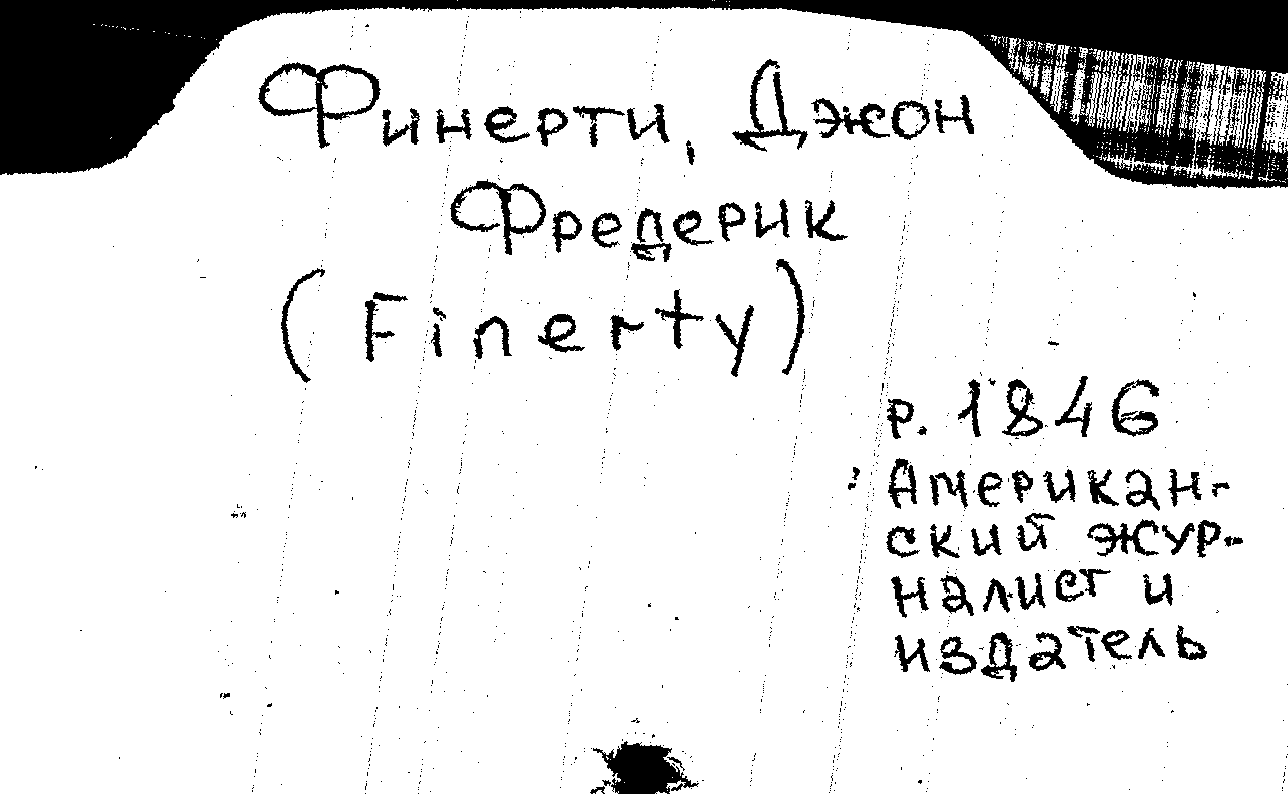 Финерти, Джон
Фредерик
(Finerty)
р. 1846
Американ-
ский жур-
налист и
издатель